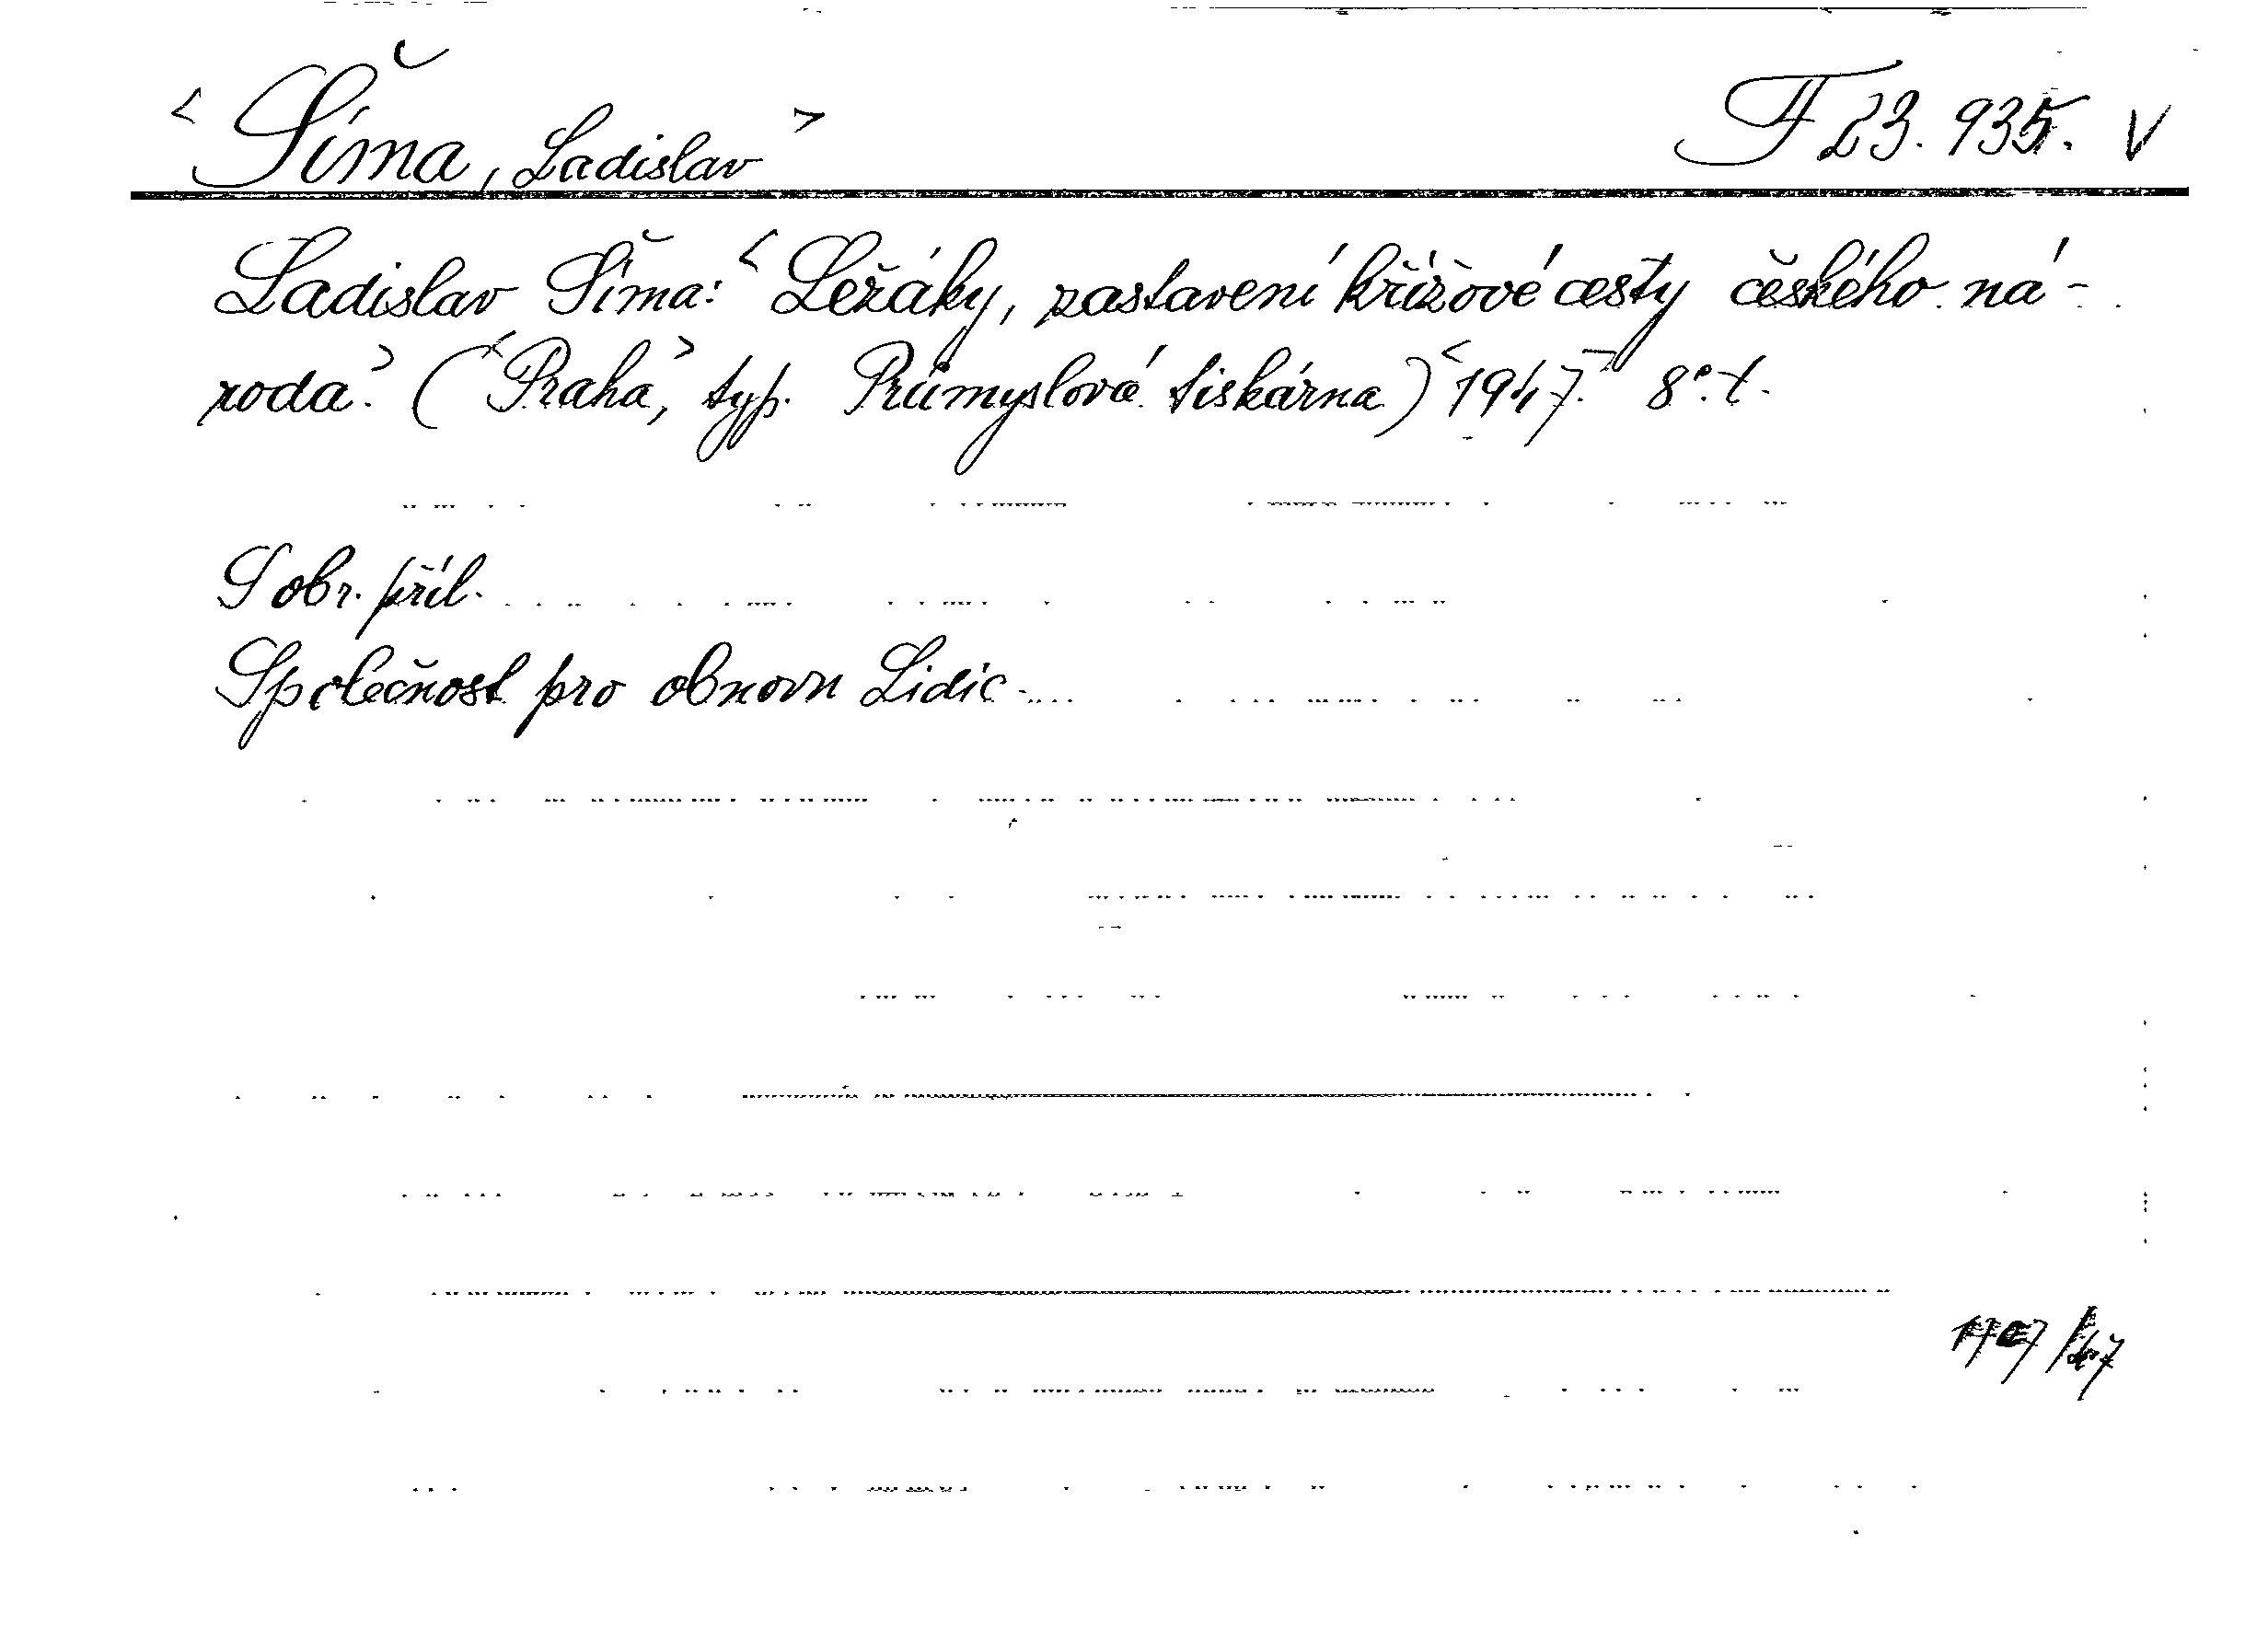 <Šíma, Ladislav> F 23.935. V
Ladislav Šíma: <Ležáky, zastavení křížové cesty českého ná-
roda.> (<Praha,> typ. Průmyslová tiskárna) <1947.> 8°. t.
S obr. příl.
Společnost pro obnovu Lidic.